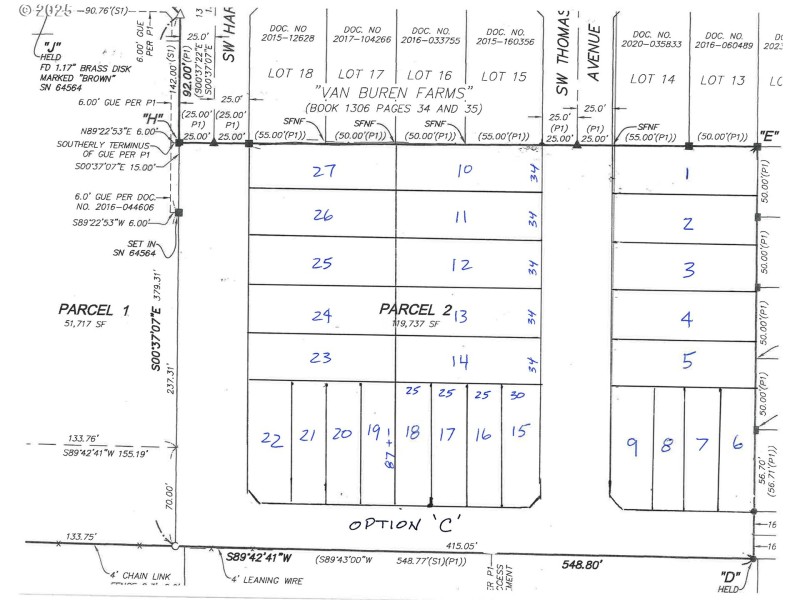 © 2025
90.76'(S1)
"J"
HELD
FD 1.17" BRASS DISK
MARKED "BROWN"
SN 64564
6.00' GUE
PER P1
142.00'(S1)
92.00'(P1)
(S00°37'22"E
(S00°37'07"E
13
25.0'
SW HAR
25.0'
6.00' GUE PER P1
"H"
N89°22'53"E 6.00'
SOUTHERLY TERMINUS
OF GUE PER P1
S00°37'07"E 15.00'
(25.00' P1)
25.00'
(25.00' P1)
25.00'
6.0' GUE PER DOC.
NO. 2016-044606
S89°22'53"W 6.00'
SET IN
SN 64564
DOC. NO
2015-12628
LOT 18
DOC. NO
2017-104266
LOT 17
DOC. NO
2016-033755
LOT 16
DOC. NO
2015-160356
LOT 15
"VAN BUREN FARMS"
(BOOK 1306 PAGES 34 AND 35)
SFNF
SFNF
SFNF
(55.00'(P1))
(50.00'(P1))
(50.00'(P1))
(55.00'(P1))
SW THOMAS
AVENUE
25.0'
25.0'
(25.00' P1)
25.00'
(25.00' P1)
25.00'
DOC. NO
2020-035833
LOT 14
DOC. NO
2016-060489
LOT 13
DOC
2023
LO
SFNF
(55.00'(P1))
(50.00'(P1))
"E"
27
10
34
1
50.00'(P1)
26
11
34
2
25
12
34
3
50.00'(P1)
PARCEL 1
51,717 SF
S00°37'07"E 379.31'
PARCEL 2
119,737 SF
24
13
34
4
50.00'(P1)
23
14
34
5
237.31'
25
25
25
30
50.00'(P1)
22
21
20
19
87 +-
18
17
16
15
9
8
7
6
133.76'
S89°42'41"W 155.19'
56.70'
(56.71'(P1))
70.00'
OPTION 'C'
16
16
133.75'
S89°42'41"W
(S89°43'00"W
415.05'
548.77'(S1)(P1))
548.80'
4' CHAIN LINK
4' LEANING WIRE
ER P1
CCESS
MENT
"D"
HELD